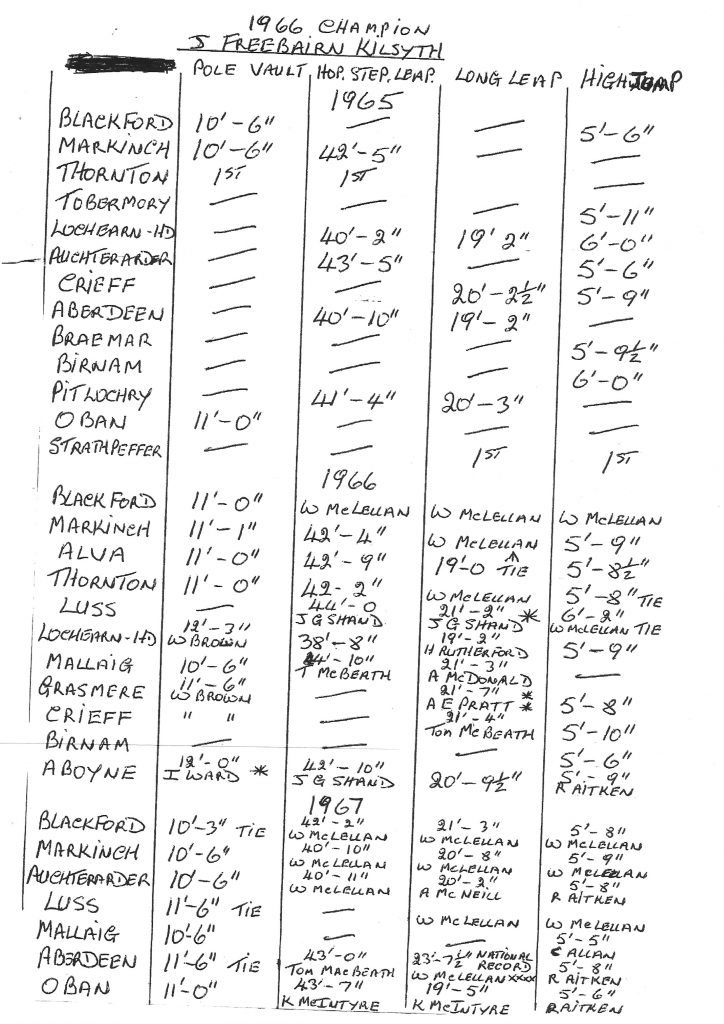 1966 CHAMPION
J FREEBAIRN KILSYTH
POLE VAULT HOP. STEP. LEAP. LONG LEAP HIGH JUMP
1965
BLACKFORD 10'-6" — — 5'-6"
MARKINCH 10'-6" 42'-5" — —
THORNTON 1ST 1ST —
TOBERMORY — — — 5'-11"
LOCHEARN-HD — 40'-2" 19' 2" 6'-0"
AUCHTERARDER — 43'-5" — 5'-6"
CRIEFF — — 20'-2½" 5'-9"
ABERDEEN — 40'-10" 19'-2" —
BRAEMAR — — — 5'-9½"
BIRNAM — — — 6'-0"
PITLOCHRY — 41'-4" 20'-3" —
OBAN 11'-0" — — —
STRATHPEFFER — — 1ST 1ST
1966
BLACKFORD 11'-0" W McLELLAN W McLELLAN W McLELLAN
MARKINCH 11'-1" 42'-4" W McLELLAN 5'-9"
ALVA 11'-0" 42'-9" 19'-0 TIE 5'-8½"
THORNTON 11'-0" 42-2" W McLELLAN 5'-8" TIE
LUSS — 44'-0 21'-2" * 6'-2"
J G SHAND J G SHAND W McLELLAN TIE
LOCHEARN-HD 12'-3" 38'-8" 19'-2" 5'-9"
W BROWN H RUTHERFORD
MALLAIG 10'-6" 44'-10" 21'-3" —
T McBEATH A McDONALD
GRASMERE 11'-6" — 21'-7" * 5'-8"
W BROWN A E PRATT *
CRIEFF " " — 21'-4" 5'-10"
TOM McBEATH
BIRNAM — — — 5'-6"
ABOYNE 12'-0" 42'-10" 20'-9½" 5'-9"
I WARD * J G SHAND R AITKEN
1967
BLACKFORD 10'-3" TIE 42'-2" 21'-3" 5'-8"
W McLELLAN W McLELLAN W McLELLAN
MARKINCH 10'-6" 40'-10" 20'-8" 5'-9"
W McLELLAN W McLELLAN W McLELLAN
AUCHTERARDER 10'-6" 40'-11" 20'-2" 5'-8"
W McLELLAN A McNEILL R AITKEN
LUSS 11'-6" TIE — W McLELLAN W McLELLAN
MALLAIG 10'-6" — — 5'-5"
C ALLAN
ABERDEEN 11'-6" TIE 43'-0" 23'-7½" NATIONAL RECORD 5'-8"
TOM MACBEATH W McLELLAN XXXX R AITKEN
OBAN 11'-0" 43'-7" 19'-5" 5'-6"
K McINTYRE K McINTYRE R AITKEN